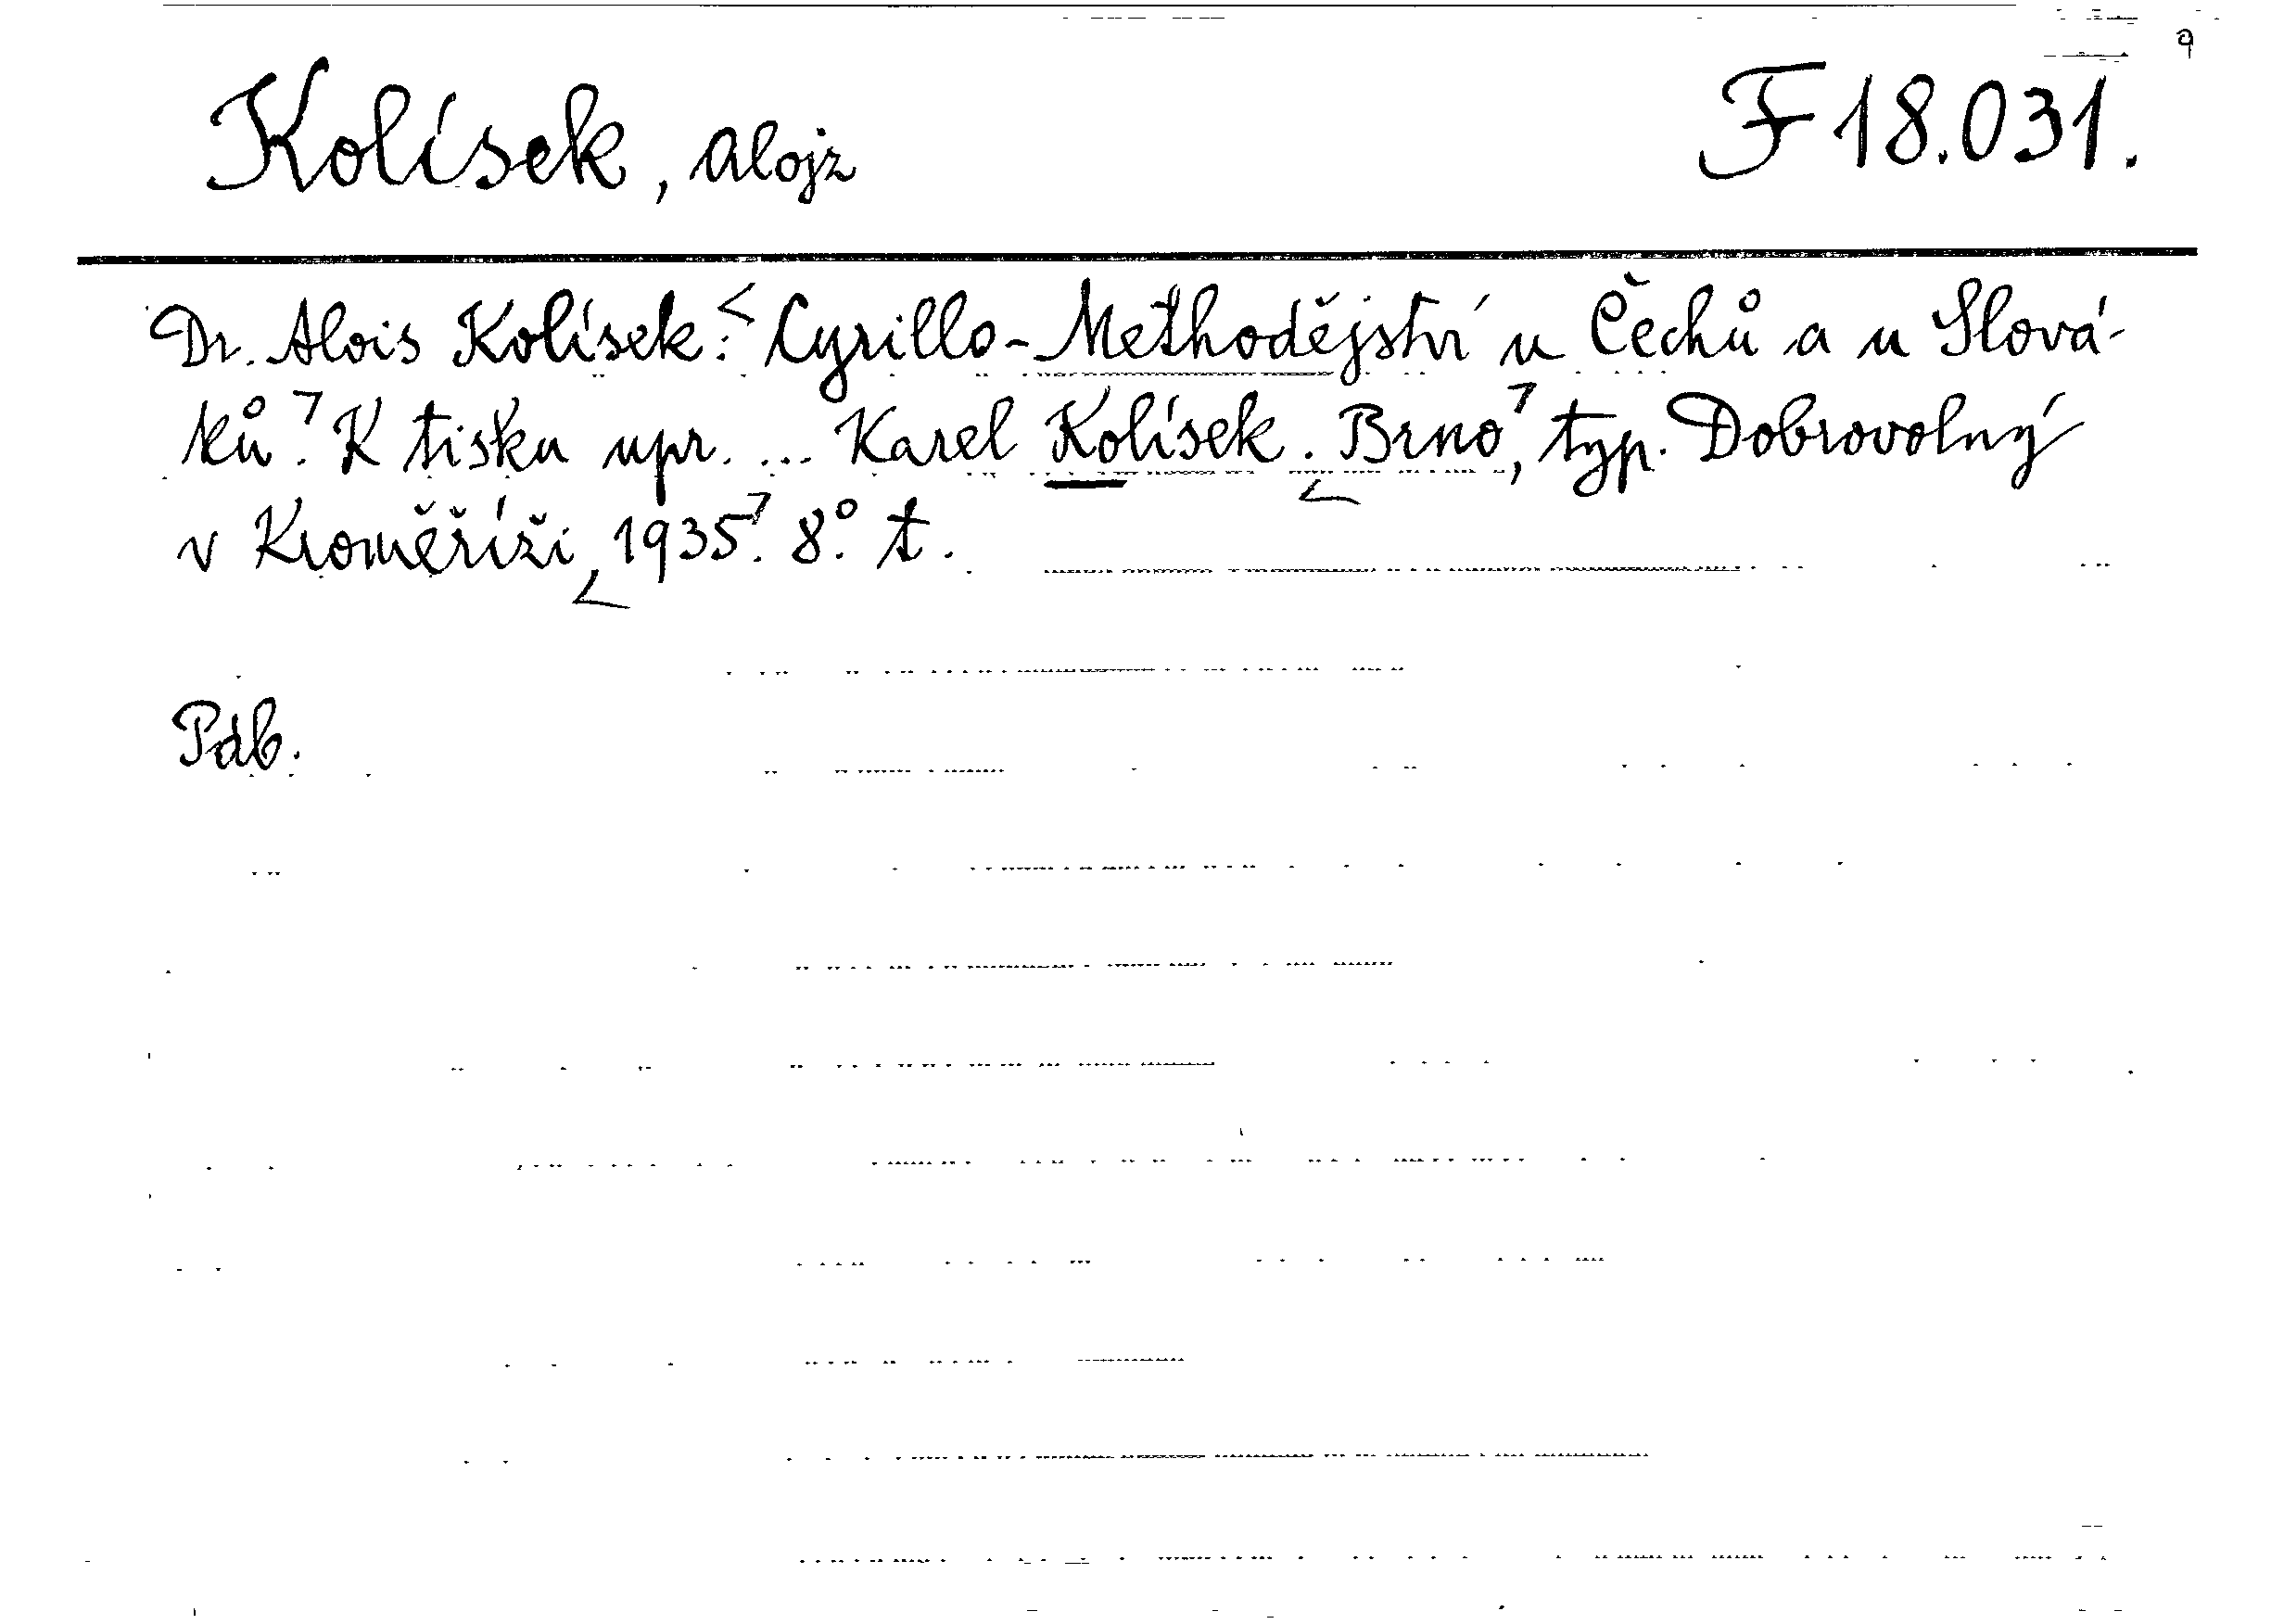 9
Kolísek, Alojz F 18.031.
Dr. Alois Kolísek: Cyrillo-Methodějství u Čechů a u Slová-
ků. K tisku upr. ... Karel Kolísek. Brno, typ. Dobrovolný
v Kroměříži, 1935. 8º. t.
Pdb.